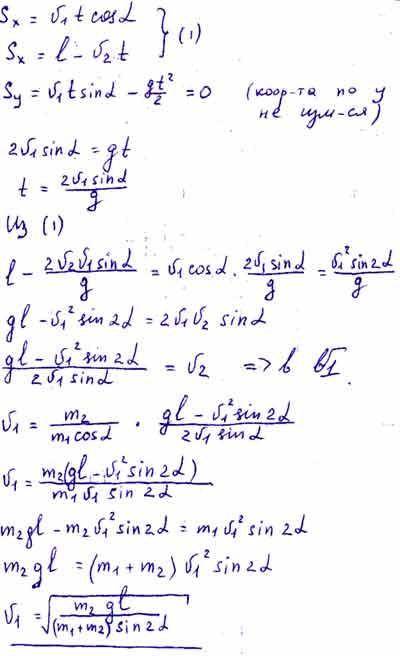 Sx = v₁ t cosα } (1)
Sx = l − v₂ t
Sy = v₁ t sinα − gt²/2 = 0 (коор-та по y
не изм-ся)
2v₁ sinα = gt
t = 2v₁ sinα / g
Из (1)
l − 2v₂v₁ sinα / g = v₁ cosα · 2v₁ sinα / g = v₁² sin2α / g
gl − v₁² sin 2α = 2v₁v₂ sinα
(gl − v₁² sin 2α) / (2v₁ sinα) = v₂ => в
v₁ = m₂ / (m₁ cosα) · (gl − v₁² sin2α) / (2v₁ sinα)
v₁ = m₂(gl − v₁² sin2α) / (m₁ v₁ sin 2α)
m₂gl − m₂ v₁² sin2α = m₁ v₁² sin 2α
m₂ gl = (m₁ + m₂) v₁² sin2α
v₁ = √(m₂ gl / ((m₁ + m₂) sin 2α))